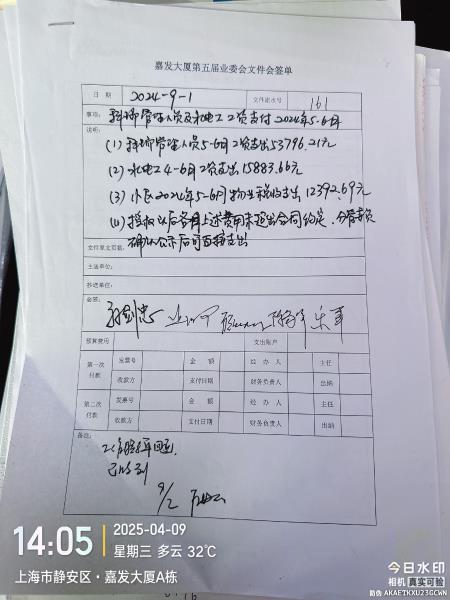 嘉发大厦第五届业委会文件会签单
日期 2024-9-1 文件流水号 161
事项: 管理人员及水电工工资支付2024年5-6月
说明:
(1) 管理人员5-6月工资支出53796.21元
(2) 水电工4-6月工资支出15883.66元
(3) 小区2024年5-6月物业税收支出12392.69元
(4) 授权以后各月上述费用未超出合同约定,
确认公示后可直接支出
文件原文页数:
主送单位:
抄送单位:
会签:
预算费用 支出账户
第一次付款 发票号 金额 经办人 主任
收款方 支付日期 财务负责人 出纳
第二次付款 发票号 金额 经办人 主任
收款方 支付日期 财务负责人 出纳
备注:
已收到
9/2
14:05
2025-04-09
星期三 多云 32℃
上海市静安区·嘉发大厦A栋
今日水印
相机 真实可验
防伪 AKAETKXU23GCWN